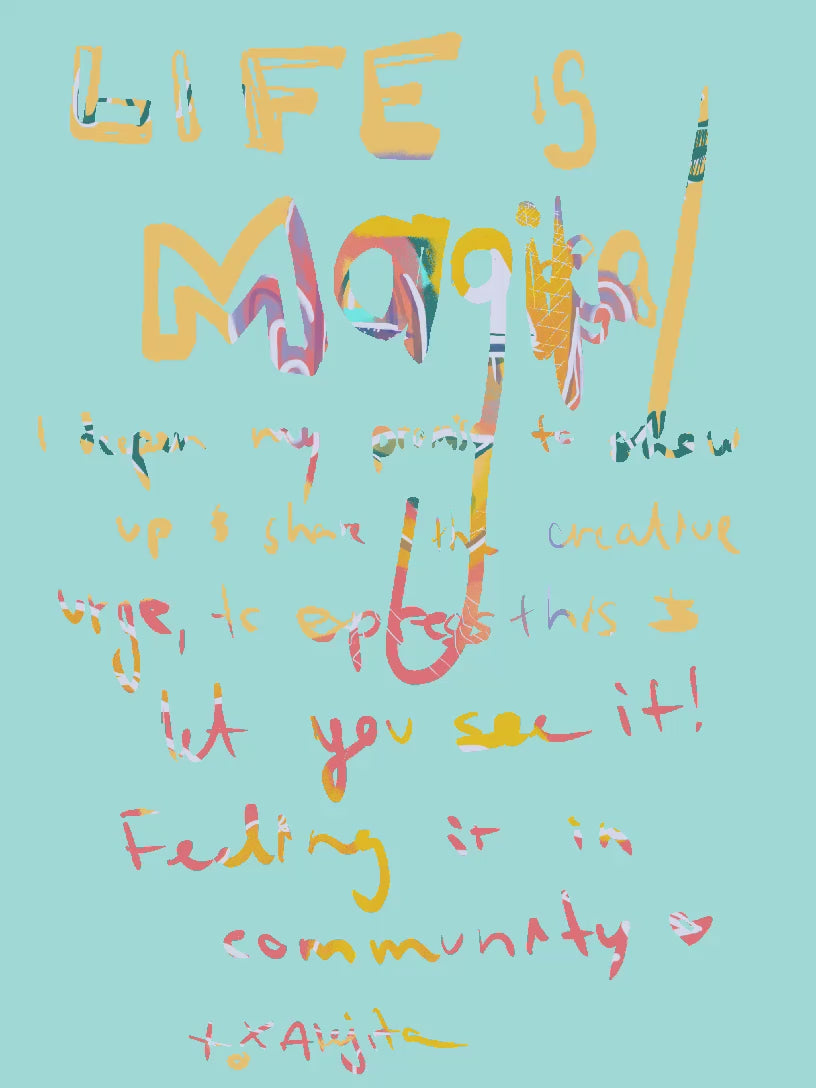 LIFE is
Magikal
I keep my promise to show
up & share the creative
urge, to express this &
let you see it!
Feeling it in
community
xox Alejita